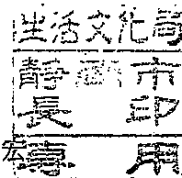 生活文化局
静岡市
長印
専用
宏